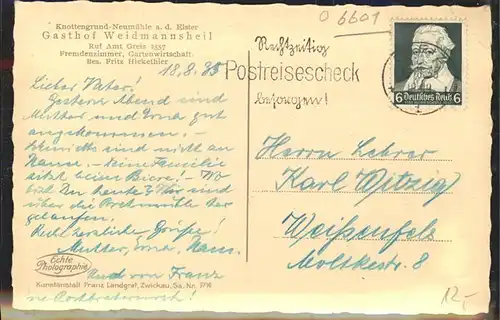 Knottengrund-Neumühle a. d. Elster
Gasthof Weidmannsheil
Ruf Amt Greiz 1557
Fremdenzimmer, Gartenwirtschaft
Bes. Fritz Hickethier
O 6601
18.8.35
Rechtzeitig
Postreisescheck
besorgen!
6 Deutsches Reich 6
Lieber Vater!
Gestern Abend sind
Mutter und Erna gut
angekommen. –
sind nicht an
Hause. – Familie
sitzt beim Biere! –
heute sind
über die
gelaufen.
Recht herzliche Grüße!
Mutter, Erna, Hans.
von Franz
Herrn Lehrer
Karl Witzig
Weißenfels
Moltkestr. 8
Echte Photographie
Kunstanstalt Franz Landgraf, Zwickau, Sa. Nr. 3716
12,-